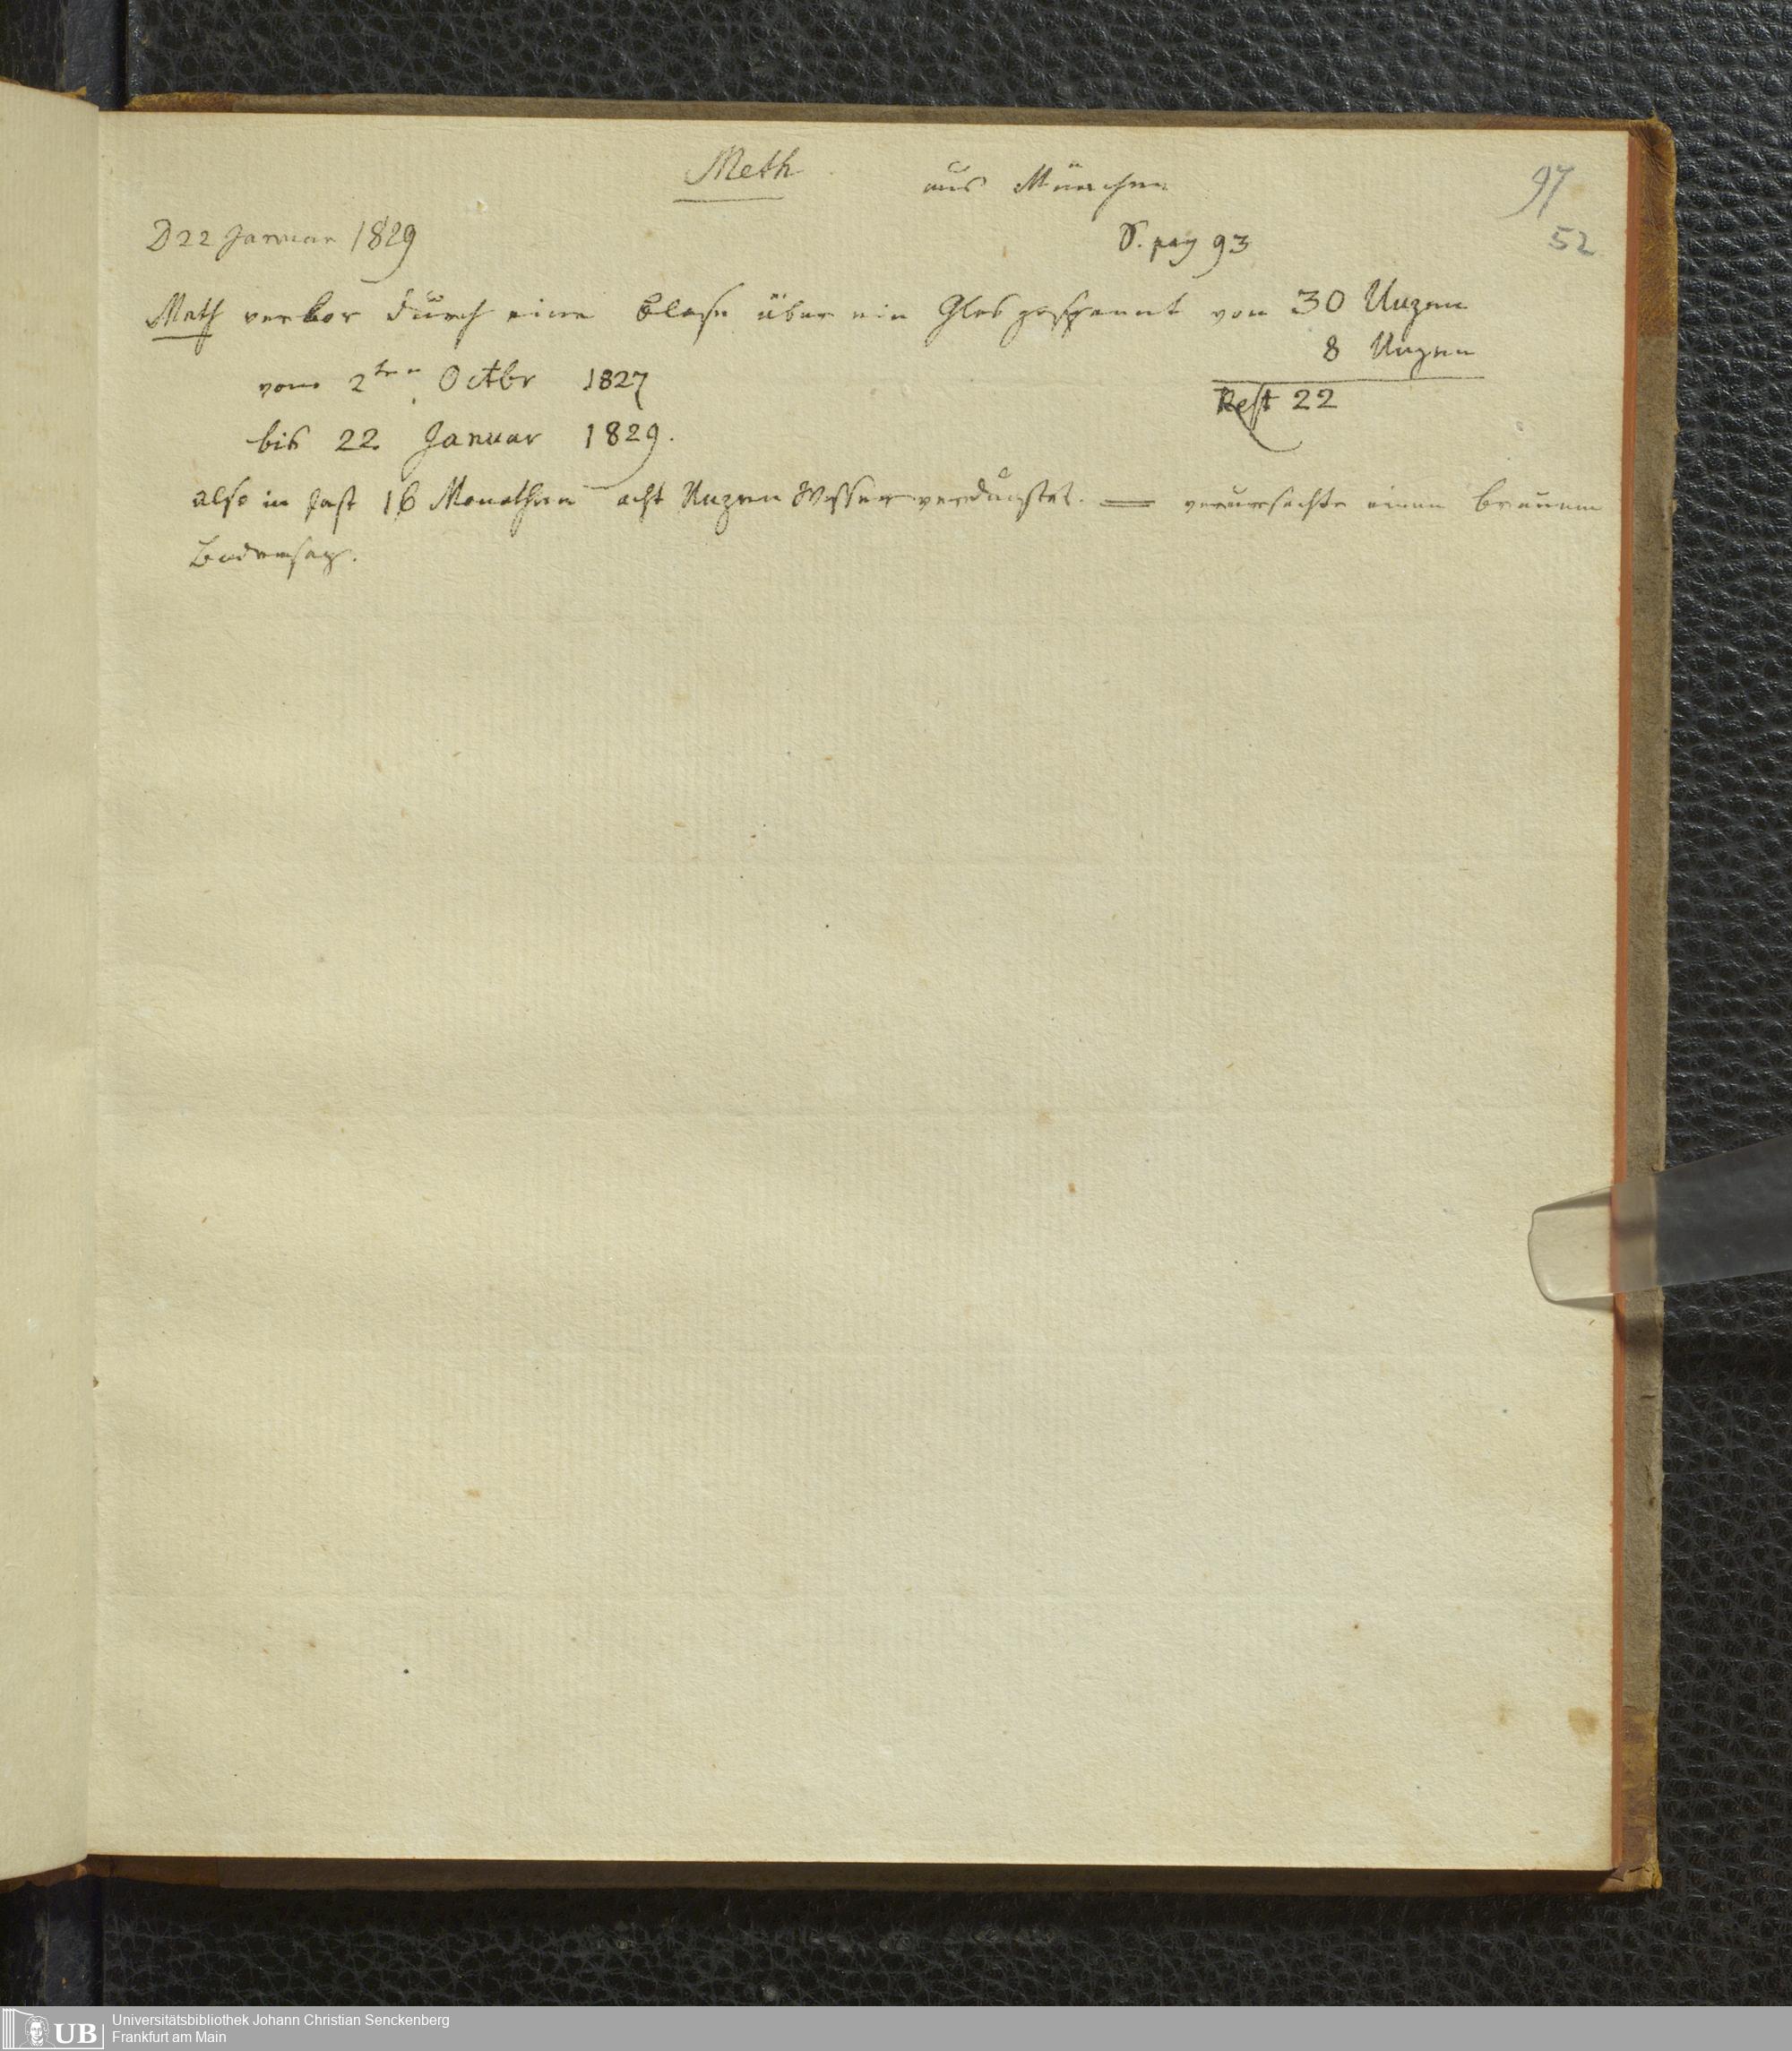 Meth aus München
97
D 22 Januar 1829 S. pag 93
52
Meth verlor durch eine Blase über ein Glas gespannt von 30 Unzen
8 Unzen
vom 2ten Octbr 1827
Rest 22
bis 22 Januar 1829.
also in fast 16 Monathen acht Unzen Wasser verdunstet. = verursachte einen braunen
Bodensaz.
UB
Universitätsbibliothek Johann Christian Senckenberg
Frankfurt am Main